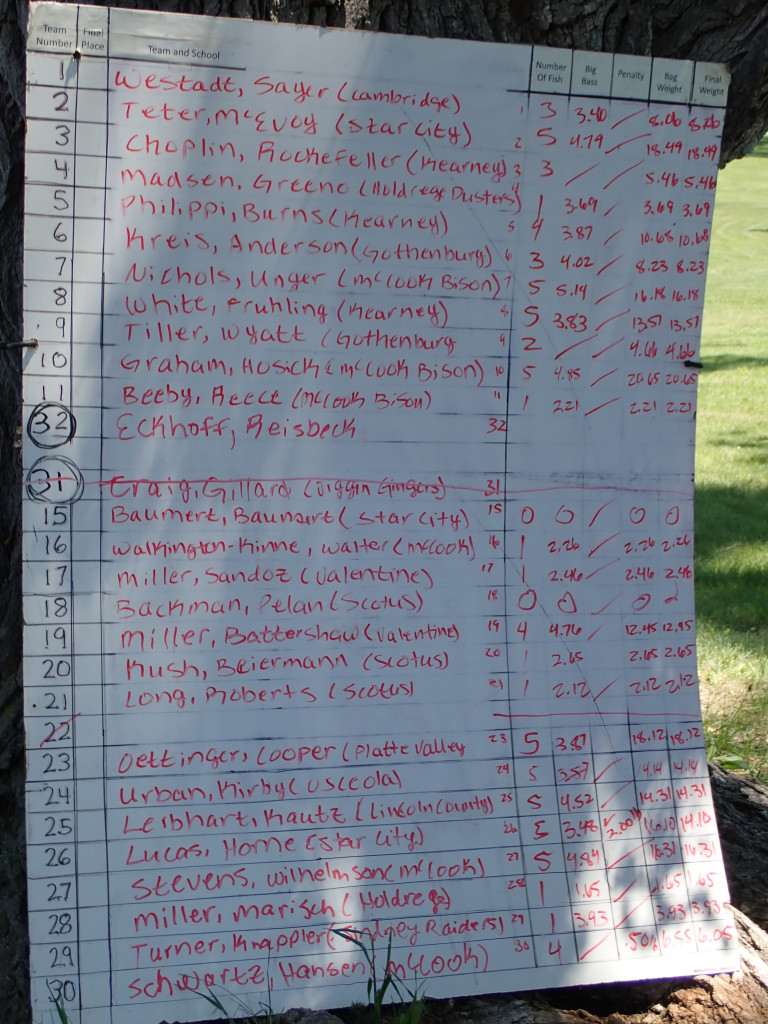 Team Number Final Place Team and School Number Of Fish Big Bass Penalty Bag Weight Final Weight
1 Westadt, Sayer (Cambridge) 1 3 3.40 / 8.06 8.06
2 Teter, McEvoy (Star City) 2 5 4.79 / 18.49 18.49
3 Choplin, Rockefeller (Kearney) 3 3 / / 5.46 5.46
4 Madsen, Greeno (Holdrege Dusters) 4 1 3.69 / 3.69 3.69
5 Philippi, Burns (Kearney) 5 4 3.87 / 10.68 10.68
6 Kreis, Anderson (Gothenburg) 6 3 4.02 / 8.23 8.23
7 Nichols, Unger (McCook Bison) 7 5 5.14 / 16.18 16.18
8 White, Fruhling (Kearney) 8 5 3.83 / 13.51 13.51
9 Tiller, Wyatt (Gothenburg 9 2 / / 4.66 4.66
10 Graham, Hosick (McCook Bison) 10 5 4.85 / 20.65 20.65
11 Beeby, Reece (McCook Bison) 11 1 2.21 / 2.21 2.21
32 Eckhoff, Reisbeck 32
31 Craig, Gillard (Jiggin Gingers) 31
15 Baumert, (Star City) 15 0 0 / 0 0
16 Walkington-Kinne, Walter (McCook) 16 1 2.26 / 2.26 2.26
17 Miller, Sandoz (Valentine) 17 1 2.46 / 2.46 2.46
18 Backman, Pelan (Scotus) 18 0 0 / 0
19 Miller, Battershaw (Valentine) 19 4 4.76 / 12.45 12.45
20 Kush, Beiermann (Scotus) 20 1 2.65 2.65 2.65
21 Long, Roberts (Scotus) 21 1 2.12 / 2.12 2.12
22
23 Oettinger, Cooper (Platte Valley 23 5 3.87 18.12 18.12
24 Urban, Kirby (Osceola) 24 5 3.57 / 14.14 14.14
25 Leibhart, Kautz (Lincoln County) 25 5 4.52 / 14.31 14.31
26 Lucas, Horne (Star City) 26 5 3.48 2.00 16.10 14.10
27 Stevens, Wilhelmson (McCook) 27 5 4.84 / 16.31 16.31
28 Miller, Marisch (Holdrege) 28 1 1.65 / 1.65 1.65
29 Turner, Knappler (Sidney Raiders) 29 1 3.93 / 3.93 3.93
30 Schwartz, Hansen McCook) 30 4 / .50 6.55 6.05